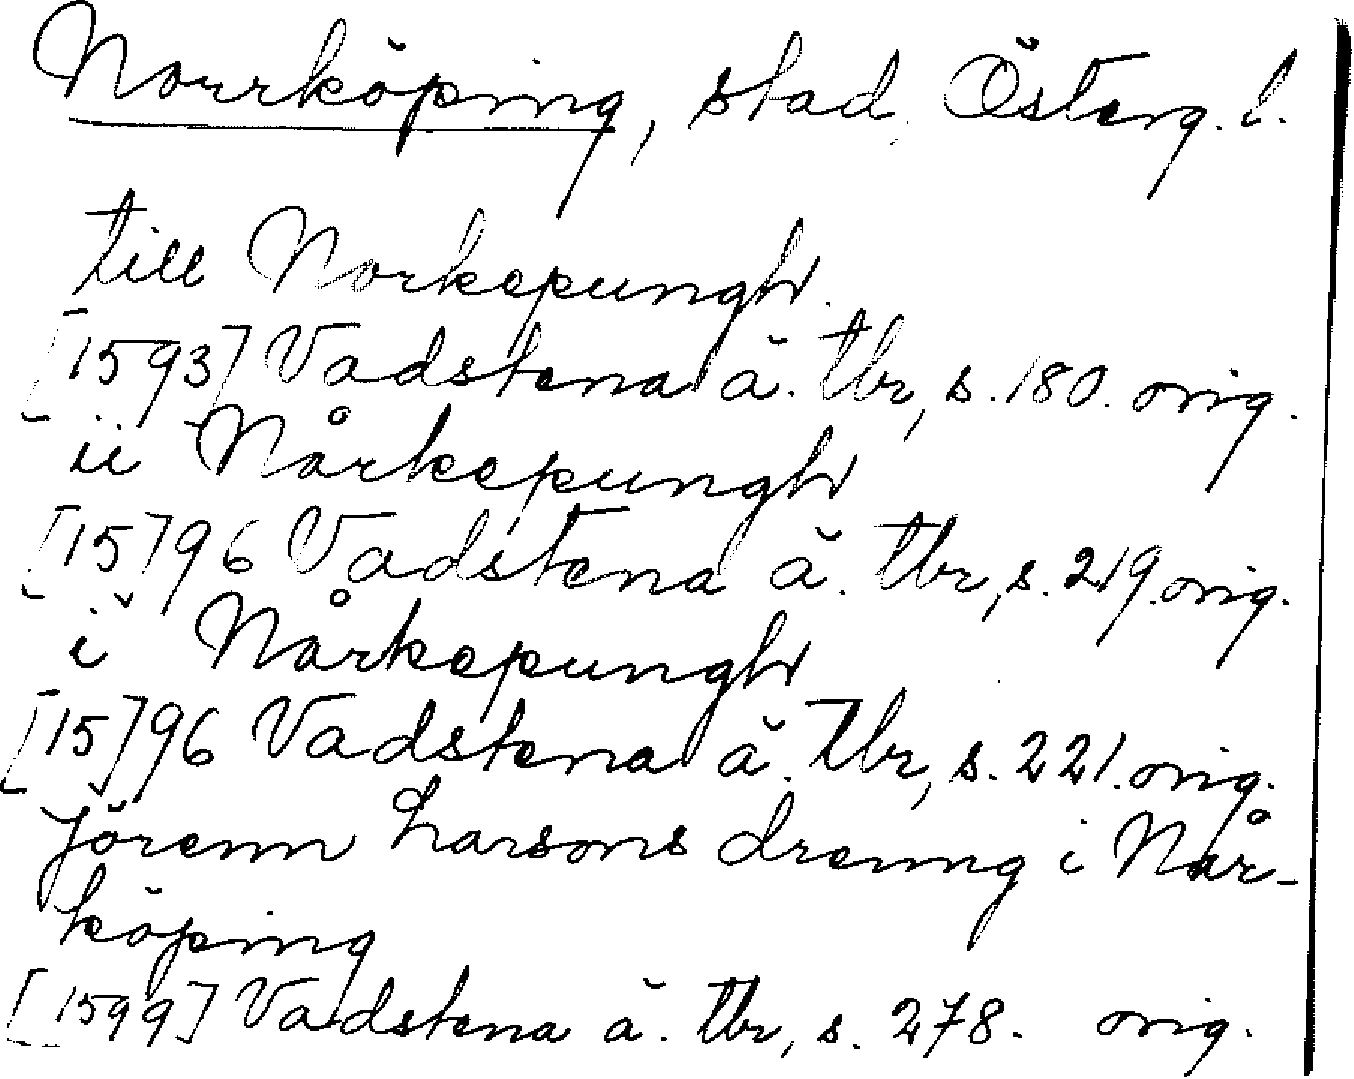 Norrköping, stad, Österg. l.
till Norkepungh.
[1593] Vadstena ä. tbr, s. 180. orig.
ii Nårkepungh
[15]96 Vadstena ä. tbr, s. 219. orig.
i Nårkepungh
[15]96 Vadstena ä. tbr, s. 221. orig.
Jörenn Larsons drenng i Når-
köping
[1599] Vadstena ä. tbr, s. 278. orig.